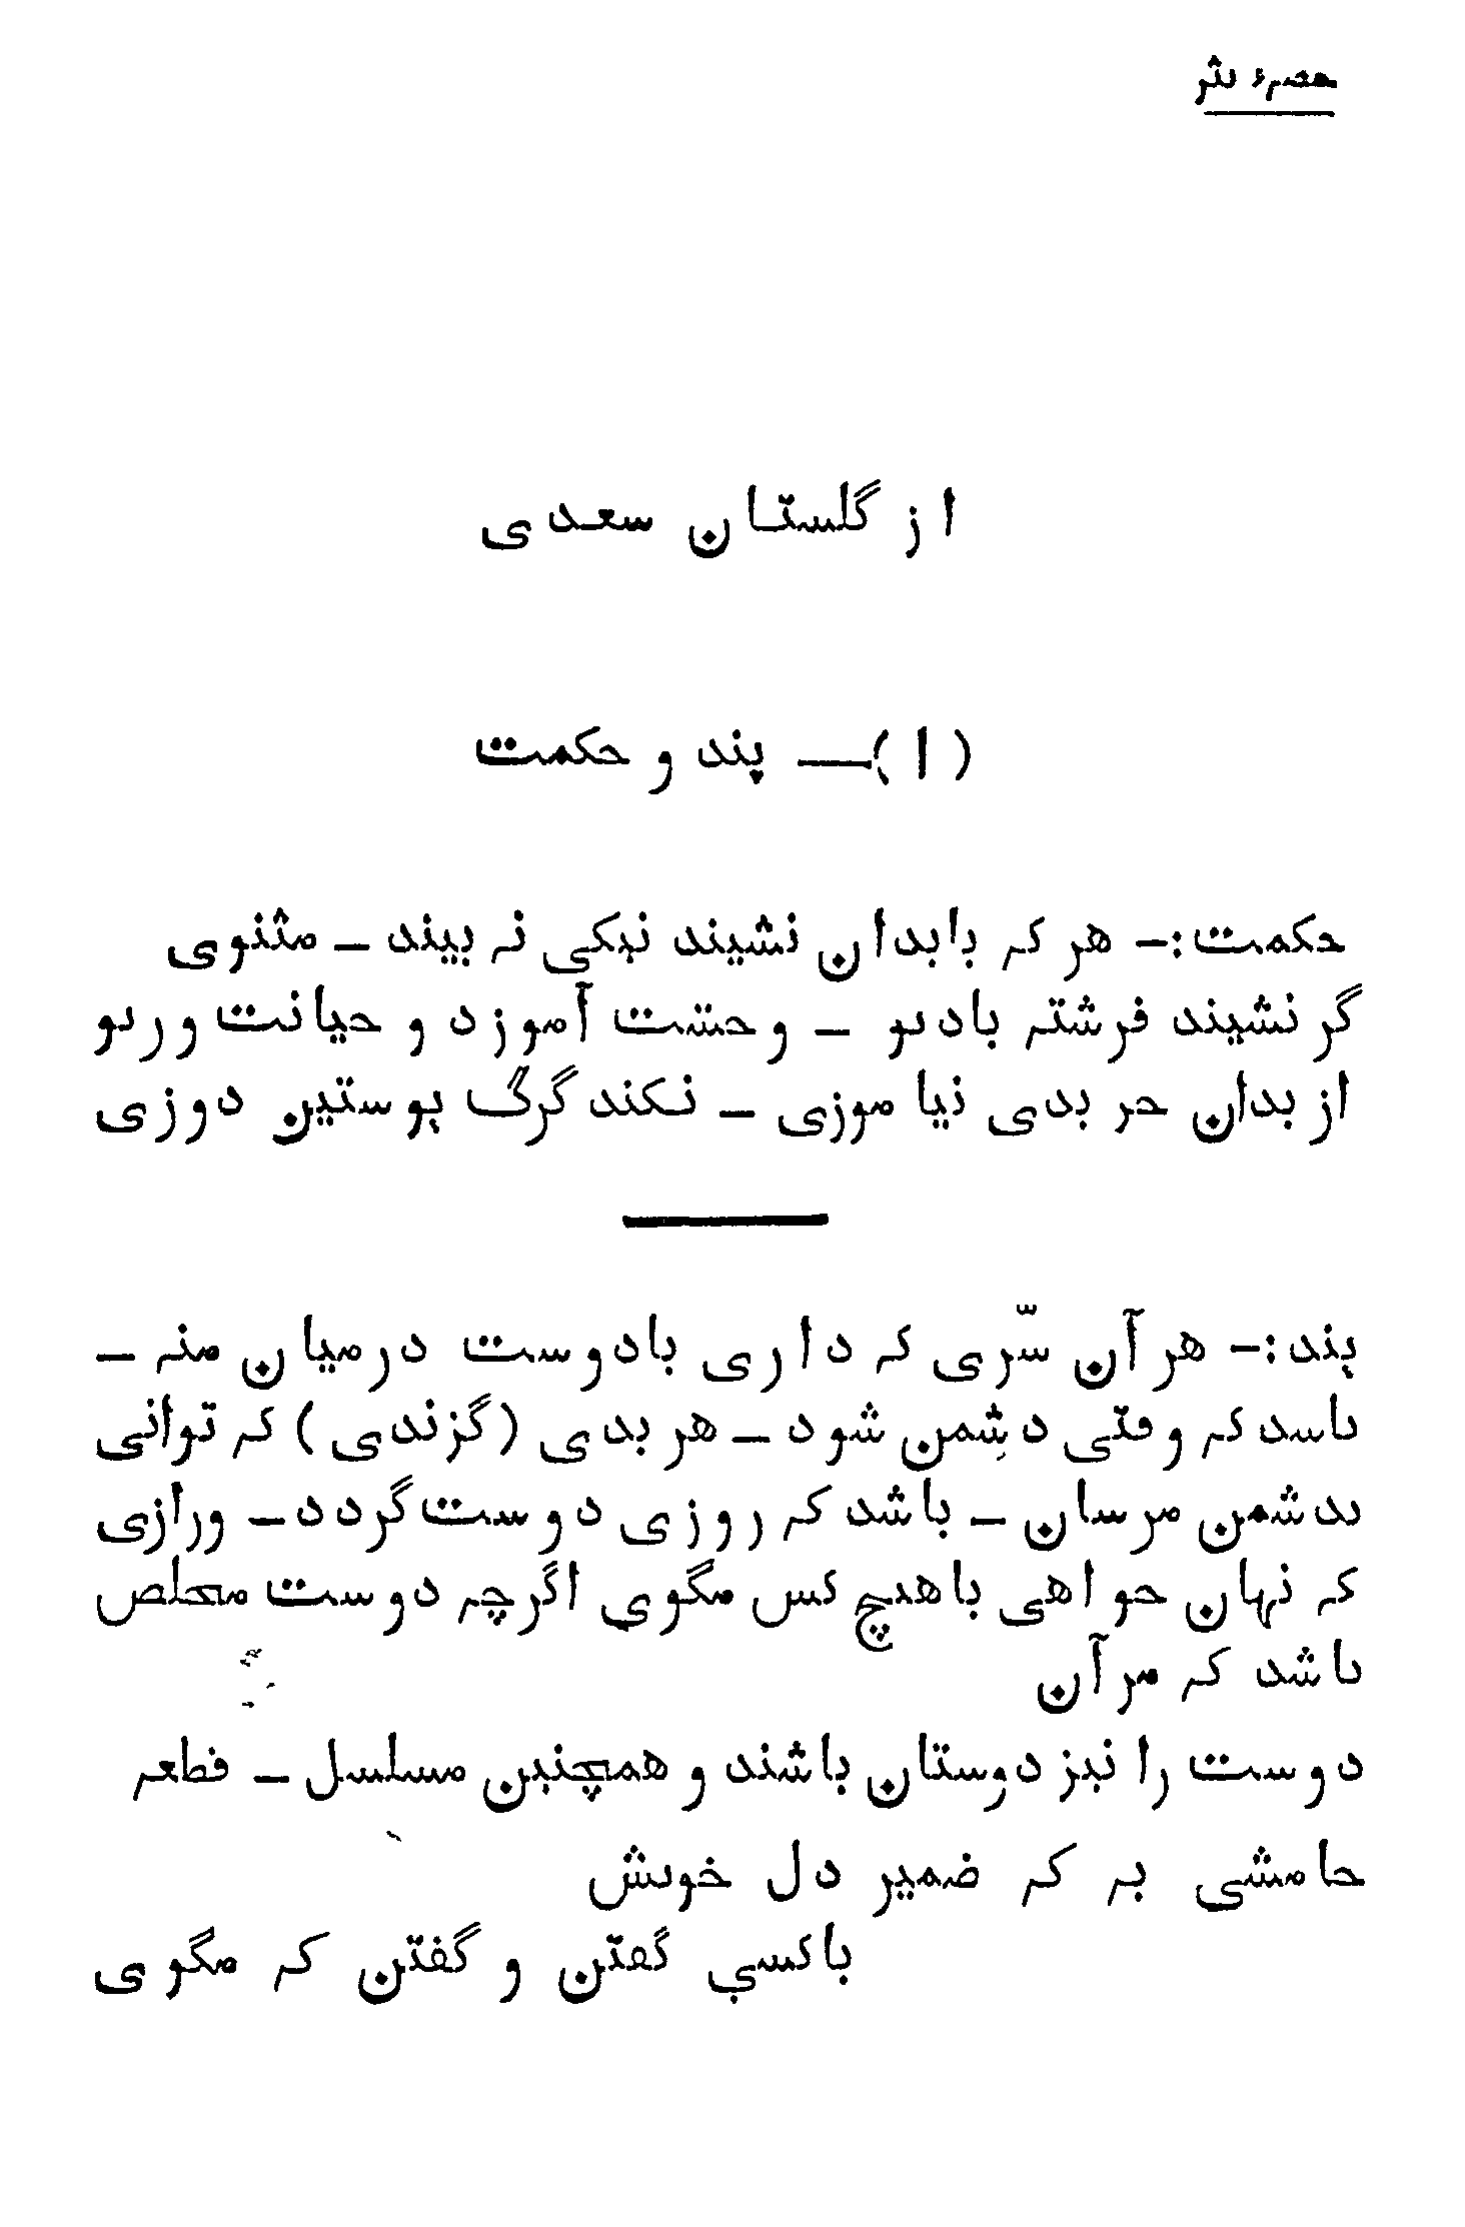 حصہء نثر
از گلستان سعدی
(۱)— پند و حکمت
حکمت:- هر که بابدان نشیند نیکی نه بیند – مثنوی
گر نشیند فرشته بادیو – وحشت آموزد و خیانت و ریو
از بدان جز بدی نیاموزی – نکند گرگ پوستین دوزی
پند:- هر آن سّری که داری بادوست درمیان منه –
باشد که وقتی دشمن شود – هر بدی (گزندی) که توانی
بدشمن مرسان – باشد که روزی دوست گردد – ورازی
که نهان خواهی باهیچ کس مگوی اگرچه دوست مخلص
باشد که مر آن
دوست را نیز دوستان باشند و همچنین مسلسل – قطعه
خامشی به که ضمیر دل خویش
باکسی گفتن و گفتن که مگوی